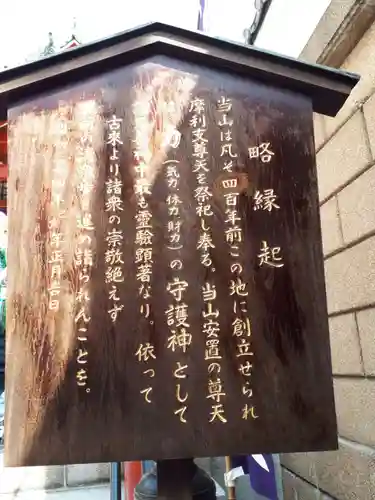 略縁起
当山は凡そ四百年前この地に創立せられ
摩利支尊天を祭祀し奉る。当山安置の尊天
力(気力、体力、財力)の守護神として
最も霊験顕著なり。依って
古来より諸衆の崇敬絶えず
進め詣られんことを。
年正月吉日